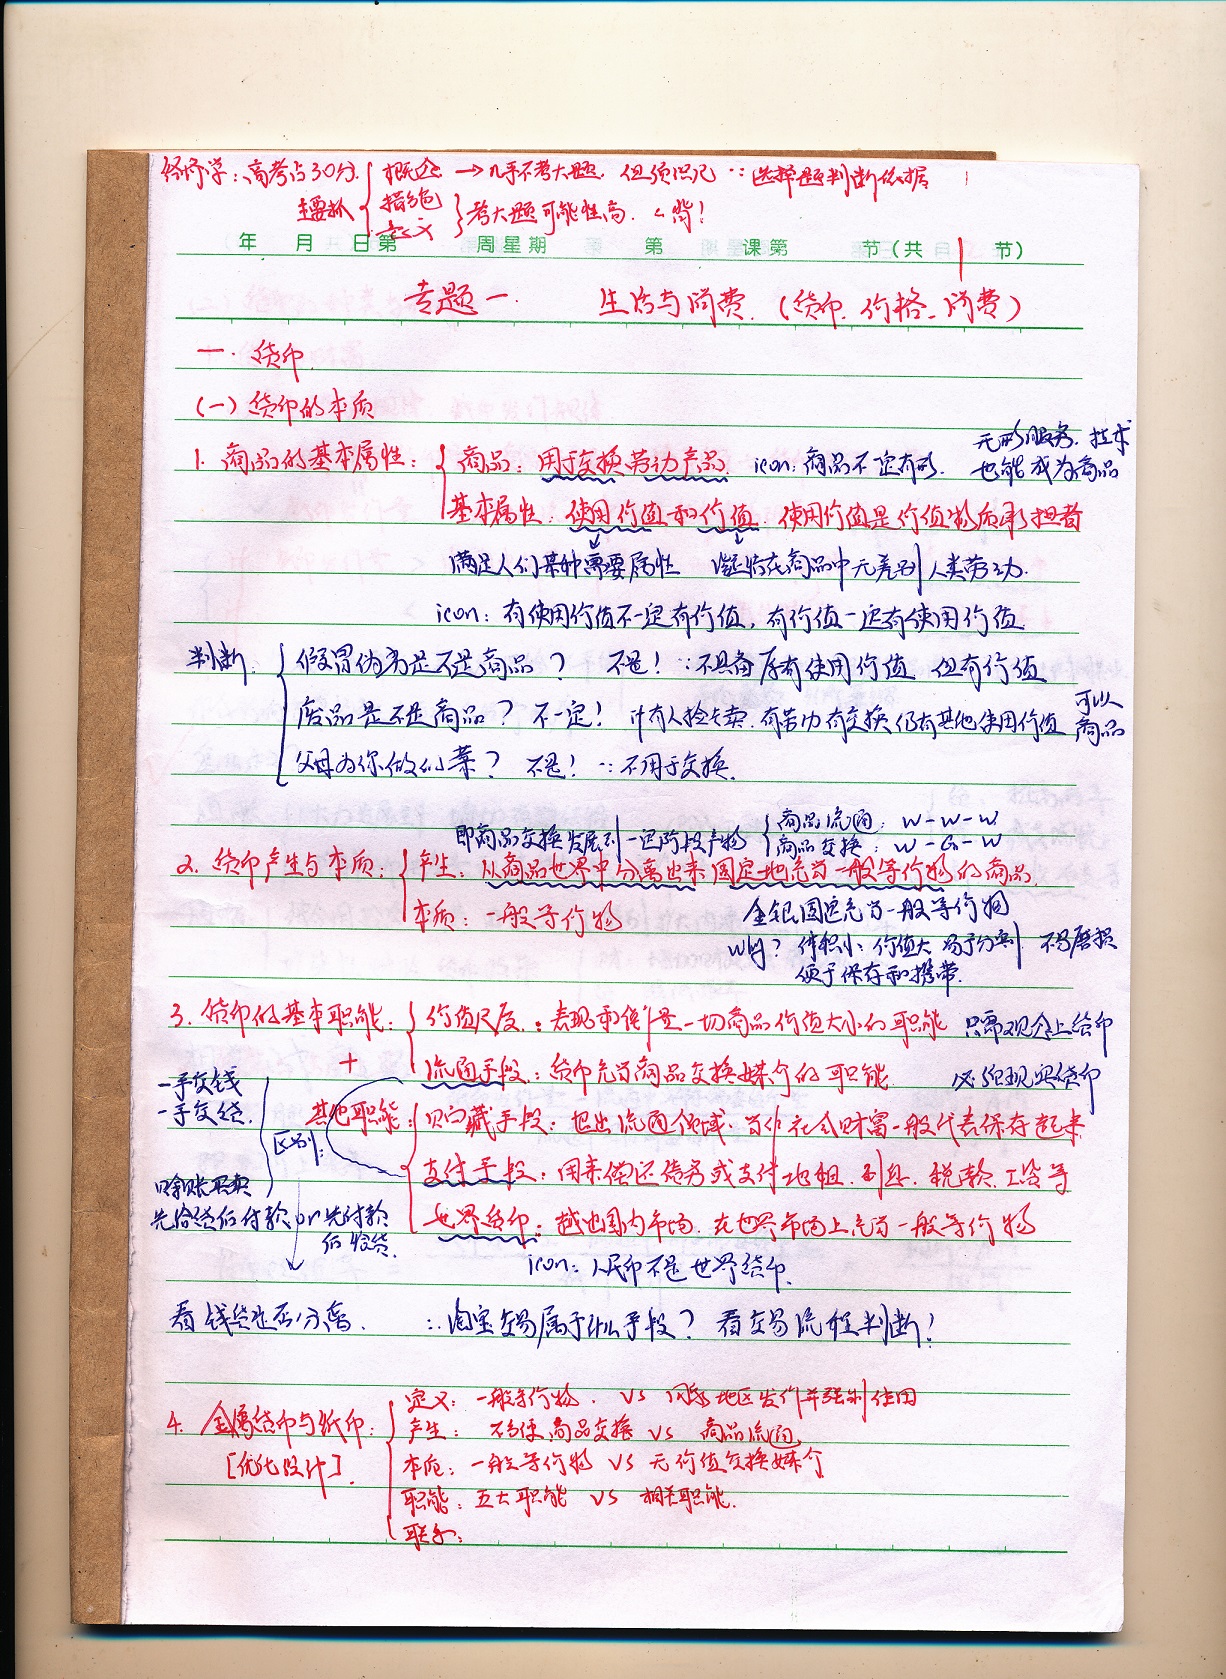 经济学：高考占30分 { 概念 → 几乎不考大题，但须识记 ∵ 选择题判断依据
主要抓 措施
意义 } 考大题可能性高，∠背！
年 月 日第 周星期 第 课第 节(共 节)
专题一. 生活与消费.（货币、价格、消费）
一. 货币
(一) 货币的本质
无形服务、技术
1. 商品的基本属性：{ 商品：用于交换劳动产品. icon：商品不一定有形. 也能成为商品
基本属性：使用价值和价值. 使用价值是价值物质承担者
满足人们某种需要属性 凝结在商品中无差别人类劳动.
icon：有使用价值不一定有价值，有价值一定有使用价值
判断. { 假冒伪劣是不是商品？ 不是！∵不具备应有使用价值 但有价值
废品是不是商品？ 不一定！ 有人捡去卖. 有劳动有交换仍有其他使用价值 可以
商品
父母为你做的菜？ 不是！∵不用于交换.
即商品交换发展到一定阶段产物 { 商品流通：W-W-W
商品交换：W-G-W
2. 货币产生与本质：{ 产生：从商品世界中分离出来固定地充当一般等价物的商品.
本质：一般等价物 金银固定充当一般等价物
why？体积小、价值大 易于分割 不易磨损
便于保存和携带.
3. 货币的基本职能：{ 价值尺度：表现和衡量一切商品价值大小的职能 只需观念上货币
+ 流通手段：货币充当商品交换媒介的职能. 必须现实货币
一手交钱
一手交货.
其他职能：{ 贮藏手段：退出流通领域、当作社会财富一般代表保存起来
区别：
支付手段：用来偿还债务或支付地租、利息、税款、工资等
赊账买卖
先给货后付款 or 先付款
后给货.
世界货币：越出国内市场，在世界市场上充当一般等价物
icon：人民币不是世界货币.
看钱货是否分离. ∴淘宝交易属于什么手段？看交易流程判断！
4. 金属货币与纸币：{ 定义：一般等价物. VS 国家地区发行并强制使用
产生：不方便商品交换 VS 商品流通
[优化设计]. 本质：一般等价物 VS 无价值交换媒介
职能：五大职能 VS 相关职能.
联系：